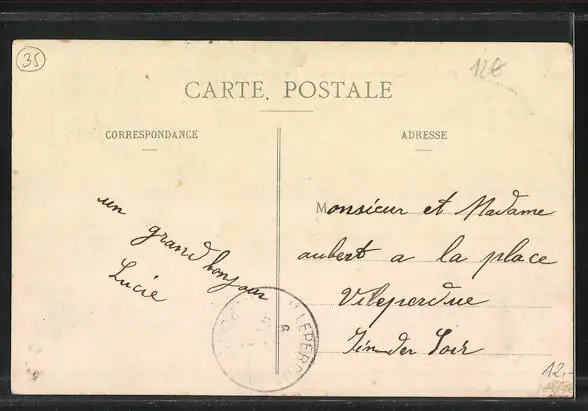 35
12€
CARTE POSTALE
CORRESPONDANCE
ADRESSE
un
grand bonjour
Lucie
Monsieur et Madame
aubert a la place
Vileperdue
Lin der Loir
VILLEPERDUE
12.-